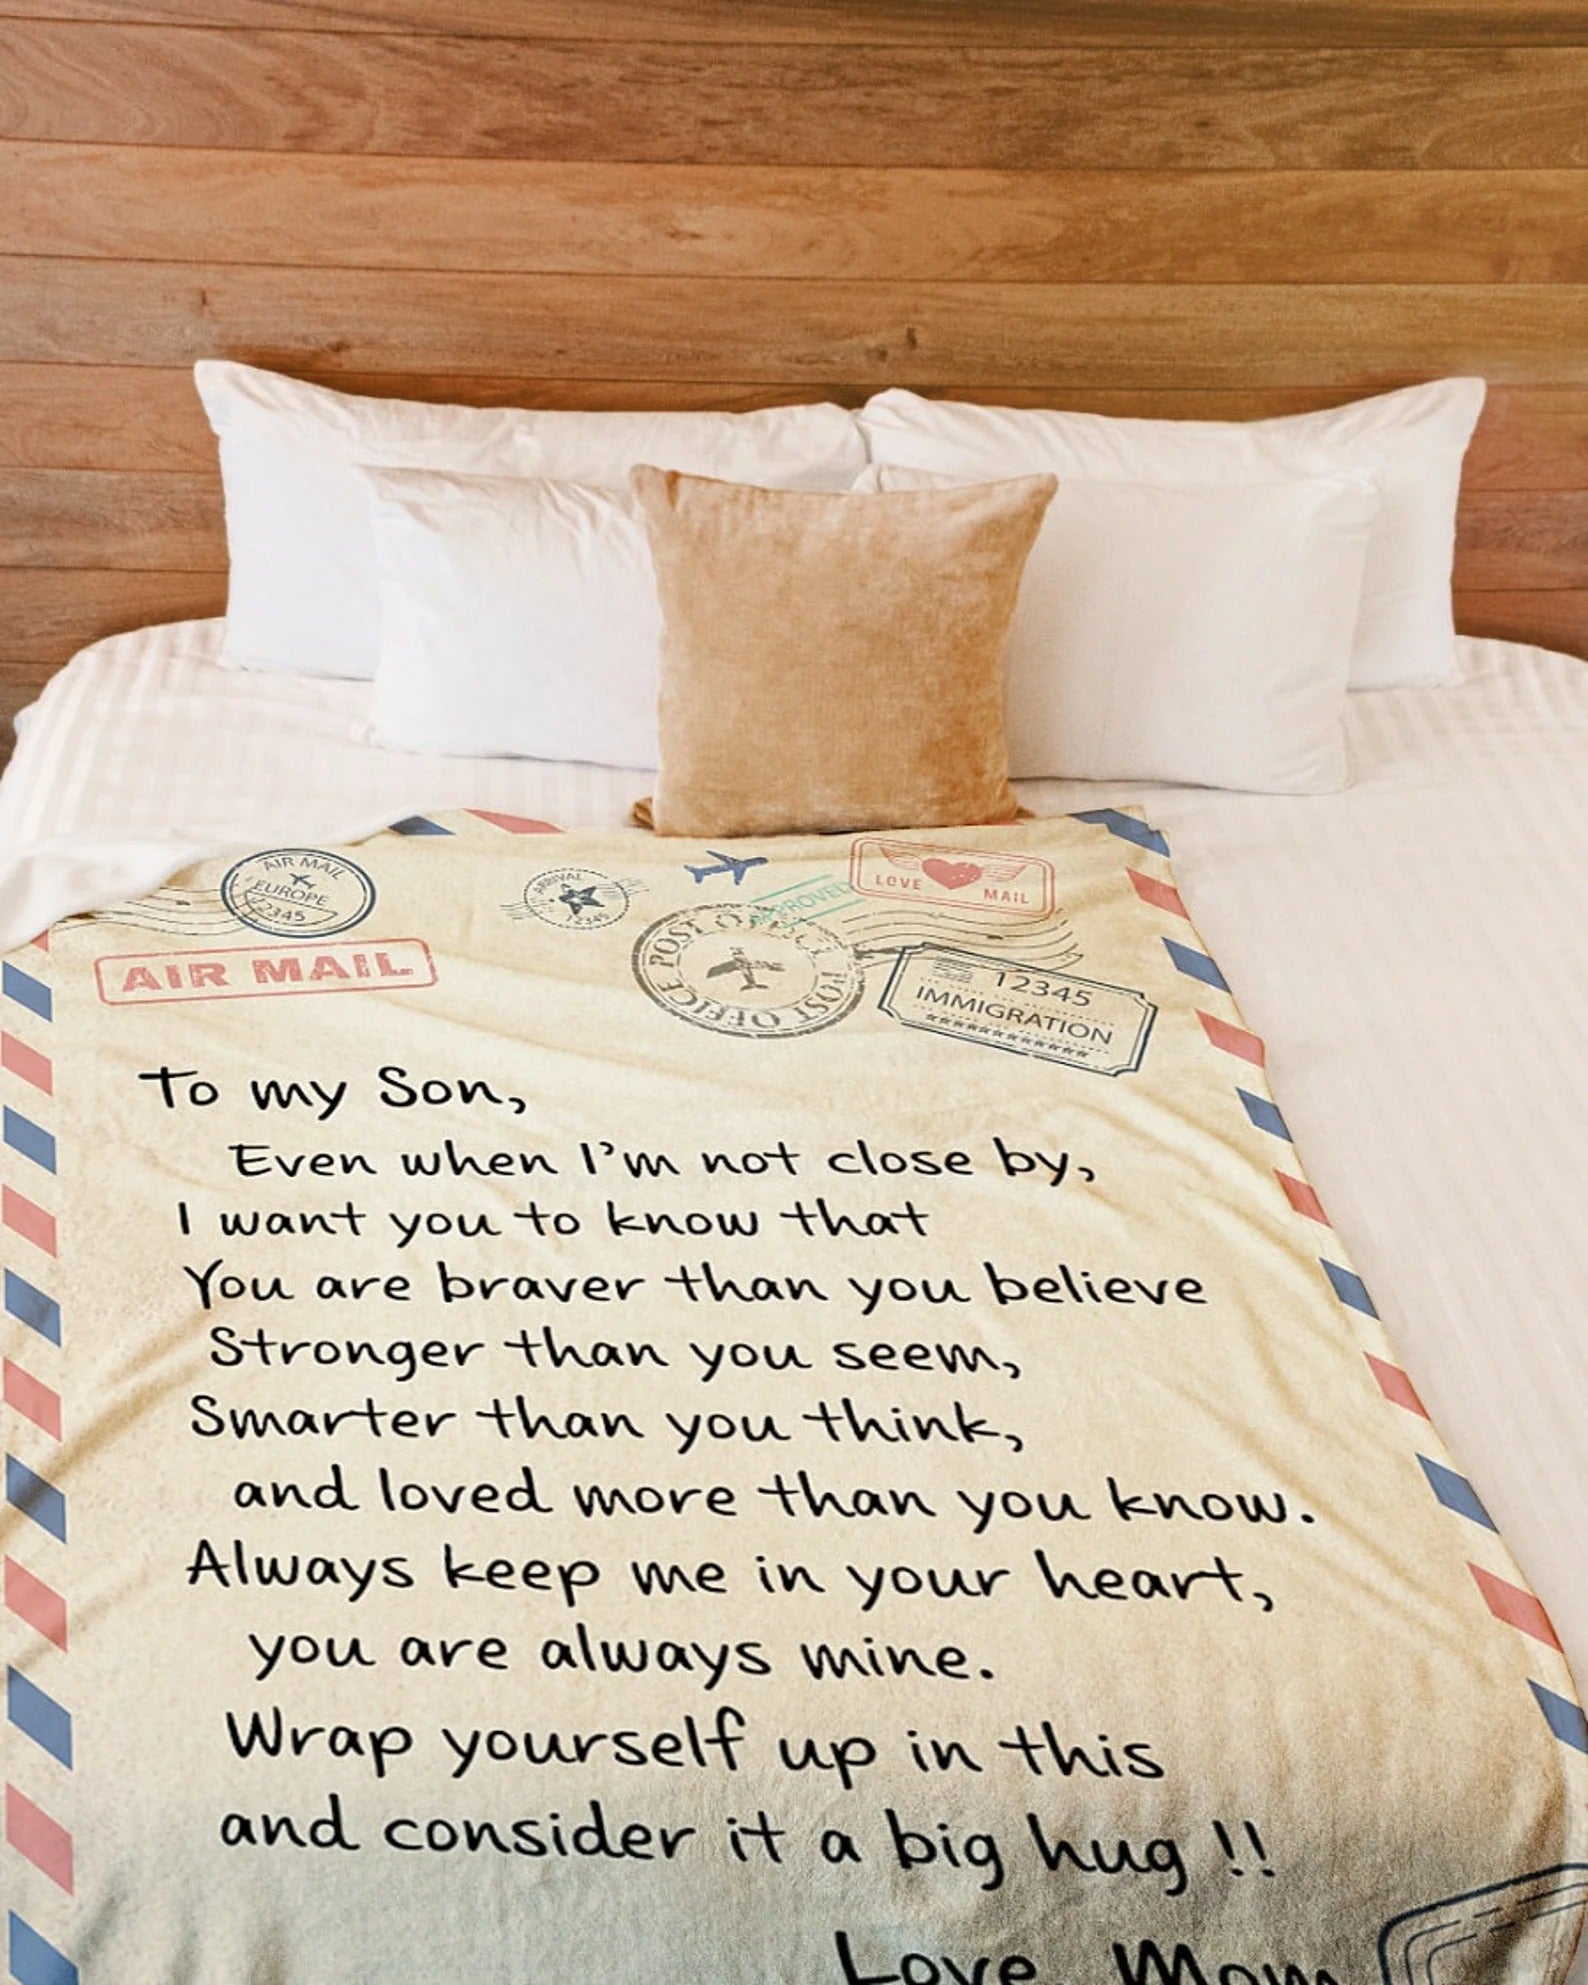 AIR MAIL
EUROPE
12345
ARRIVAL
12345
APPROVED
LOVE MAIL
AIR MAIL
POST OFFICE
POST OFFICE
12345
IMMIGRATION
To my Son,
Even when I'm not close by,
I want you to know that
You are braver than you believe
Stronger than you seem,
Smarter than you think,
and loved more than you know.
Always keep me in your heart,
you are always mine.
Wrap yourself up in this
and consider it a big hug !!
Love, Mom